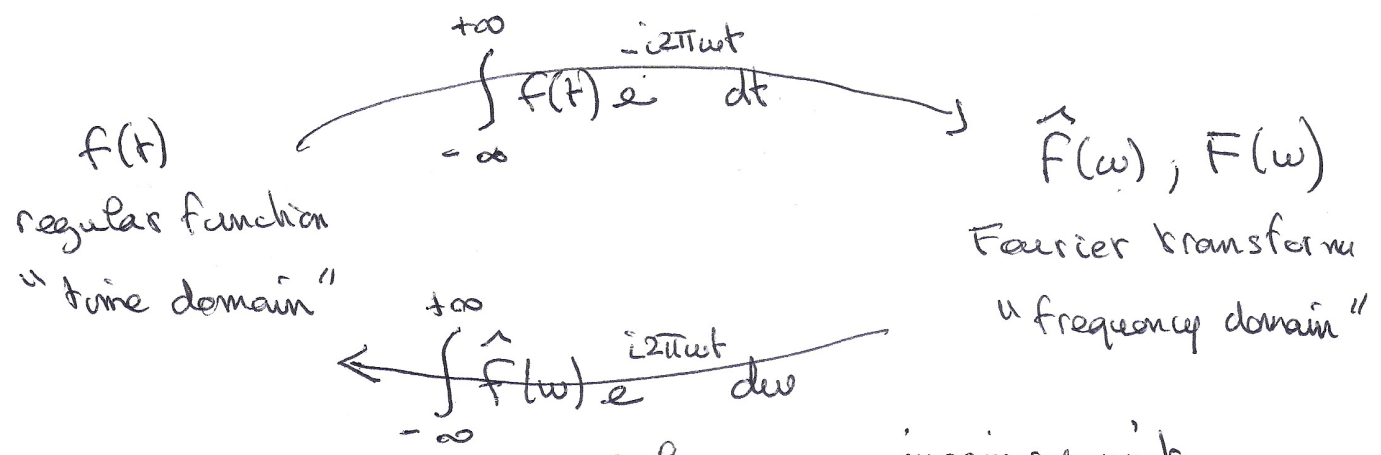 +∞
∫ f(t) e^{-i2πωt} dt
-∞
f(t)
regular function
"time domain"
f̂(ω), F(ω)
Fourier transform
"frequency domain"
+∞
∫ f̂(ω) e^{i2πωt} dω
-∞